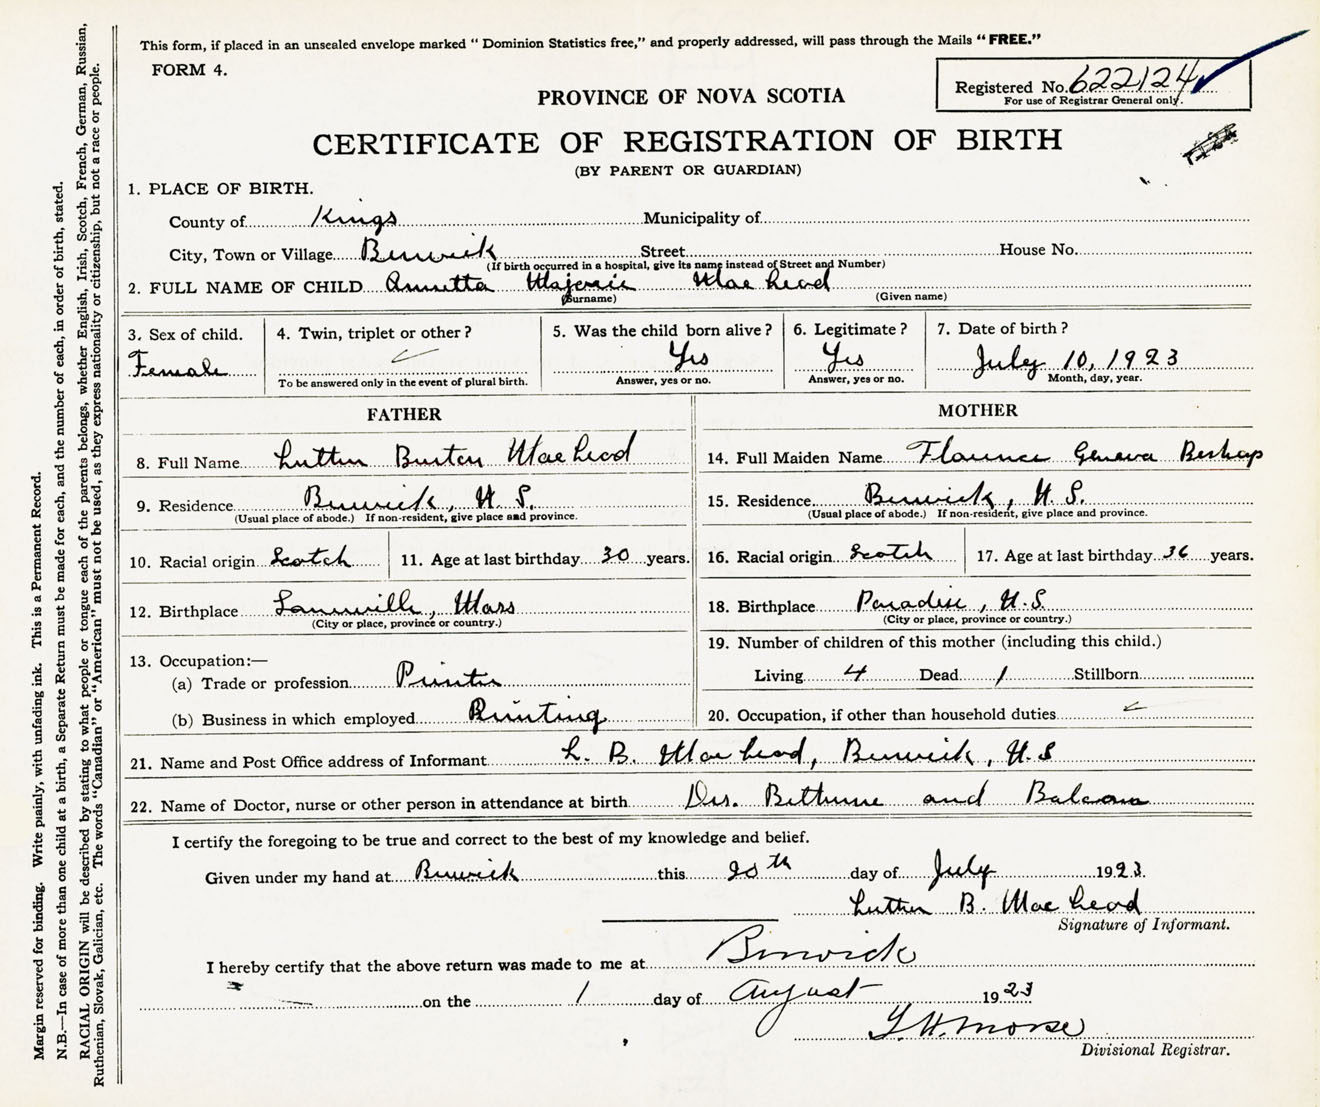 This form, if placed in an unsealed envelope marked "Dominion Statistics free," and properly addressed, will pass through the Mails "FREE."
FORM 4.
Registered No. 622124
For use of Registrar General only.
PROVINCE OF NOVA SCOTIA
CERTIFICATE OF REGISTRATION OF BIRTH
(BY PARENT OR GUARDIAN)
1. PLACE OF BIRTH.
County of Kings Municipality of
City, Town or Village Berwick Street House No.
(If birth occurred in a hospital, give its name instead of Street and Number)
2. FULL NAME OF CHILD Annetta Majorie MacLeod
(Surname) (Given name)
3. Sex of child. 4. Twin, triplet or other? 5. Was the child born alive? 6. Legitimate? 7. Date of birth?
Female Yes Yes July 10, 1923
To be answered only in the event of plural birth. Answer, yes or no. Answer, yes or no. Month, day, year.
FATHER MOTHER
8. Full Name Luther Burton MacLeod 14. Full Maiden Name Florence Geneva Bishop
9. Residence Berwick, N.S. 15. Residence Berwick, N.S.
(Usual place of abode.) If non-resident, give place and province. (Usual place of abode.) If non-resident, give place and province.
10. Racial origin Scotch 11. Age at last birthday 30 years. 16. Racial origin Scotch 17. Age at last birthday 36 years.
12. Birthplace Mass 18. Birthplace Paradise, N.S.
(City or place, province or country.) (City or place, province or country.)
19. Number of children of this mother (including this child.)
13. Occupation:—
(a) Trade or profession Printer Living 4 Dead 1 Stillborn
(b) Business in which employed Printing 20. Occupation, if other than household duties
21. Name and Post Office address of Informant L. B. MacLeod, Berwick, N.S
22. Name of Doctor, nurse or other person in attendance at birth Drs. Bethune and Balcom
I certify the foregoing to be true and correct to the best of my knowledge and belief.
Given under my hand at Berwick this 20th day of July 1923.
Luther B. MacLeod
Signature of Informant.
I hereby certify that the above return was made to me at Berwick
on the 1 day of August 1923
Morse
Divisional Registrar.
Margin reserved for binding. Write plainly, with unfading ink. This is a Permanent Record.
N.B.—In case of more than one child at a birth, a Separate Return must be made for each, and the number of each, in order of birth, stated.
RACIAL ORIGIN will be described by stating to what people or tongue each of the parents belongs, whether English, Irish, Scotch, French, German, Russian,
Ruthenian, Slovak, Galician, etc. The words "Canadian" or "American" must not be used, as they express nationality or citizenship, but not a race or people.